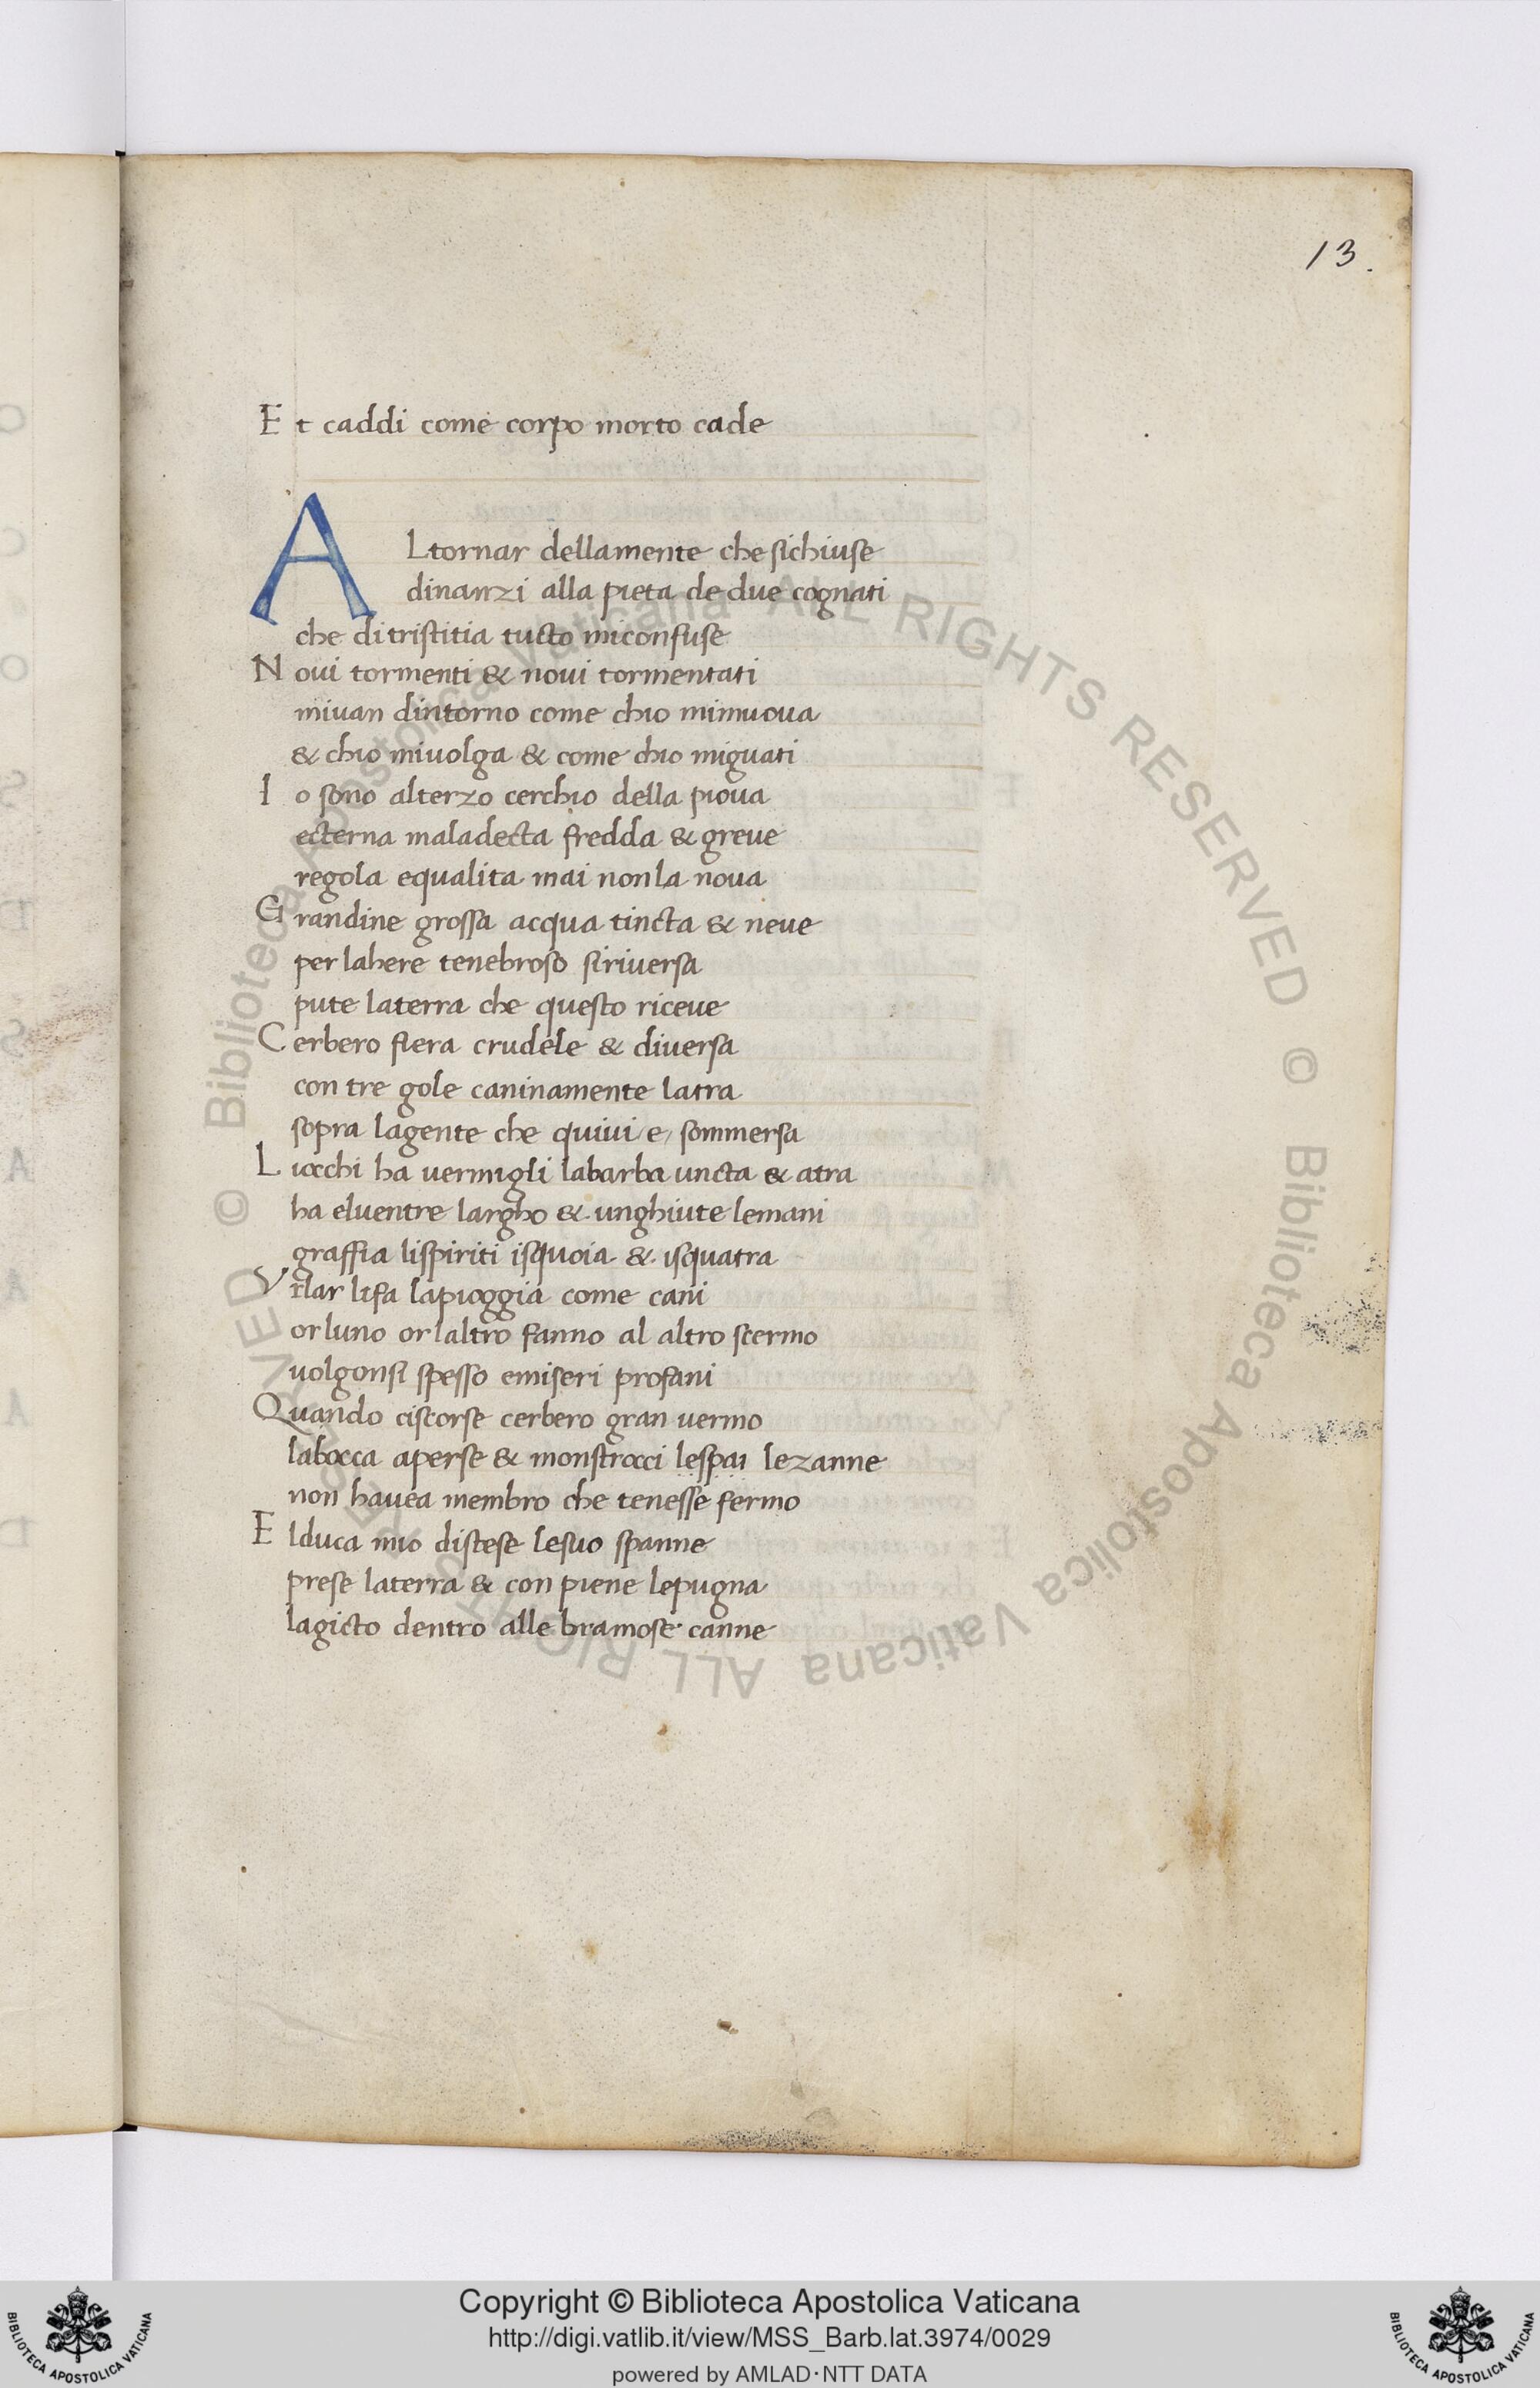 13.
Et caddi come corpo morto cade
ALtornar dellamente che sichiuse
dinanzi alla pieta de due cognati
che ditristitia tucto miconfuse
Noui tormenti & noui tormentati
miuan dintorno come chio mimuoua
& chio miuolga & come chio miguati
Io sono alterzo cerchio della pioua
ecterna maladecta fredda & greue
regola equalita mai nonla noua
Grandine grossa acqua tincta & neue
per lahere tenebroso siriuersa
pute laterra che questo riceue
Cerbero fiera crudele & diuersa
con tre gole caninamente latra
sopra lagente che quiui /e/ sommersa
Liocchi ha uermigli labarba uncta & atra
ha eluentre largho & unghiute lemani
graffia lispiriti isquoia & isquatra
Vrlar lifa lapioggia come cani
orluno orlaltro fanno al altro scermo
uolgonsi spesso emiseri profani
Quando ciscorse cerbero gran uermo
labocca aperse & monstrocci lespai lezanne
non hauea membro che tenesse fermo
Elduca mio distese lesuo spanne
prese laterra & con piene lepugna
lagicto dentro alle bramose canne
Biblioteca Apostolica Vaticana ALL RIGHTS RESERVED © Biblioteca Apostolica Vaticana ALL RIGHTS RESERVED ©
Copyright © Biblioteca Apostolica Vaticana
http://digi.vatlib.it/view/MSS_Barb.lat.3974/0029
powered by AMLAD·NTT DATA
BIBLIOTECA APOSTOLICA VATICANA
BIBLIOTECA APOSTOLICA VATICANA